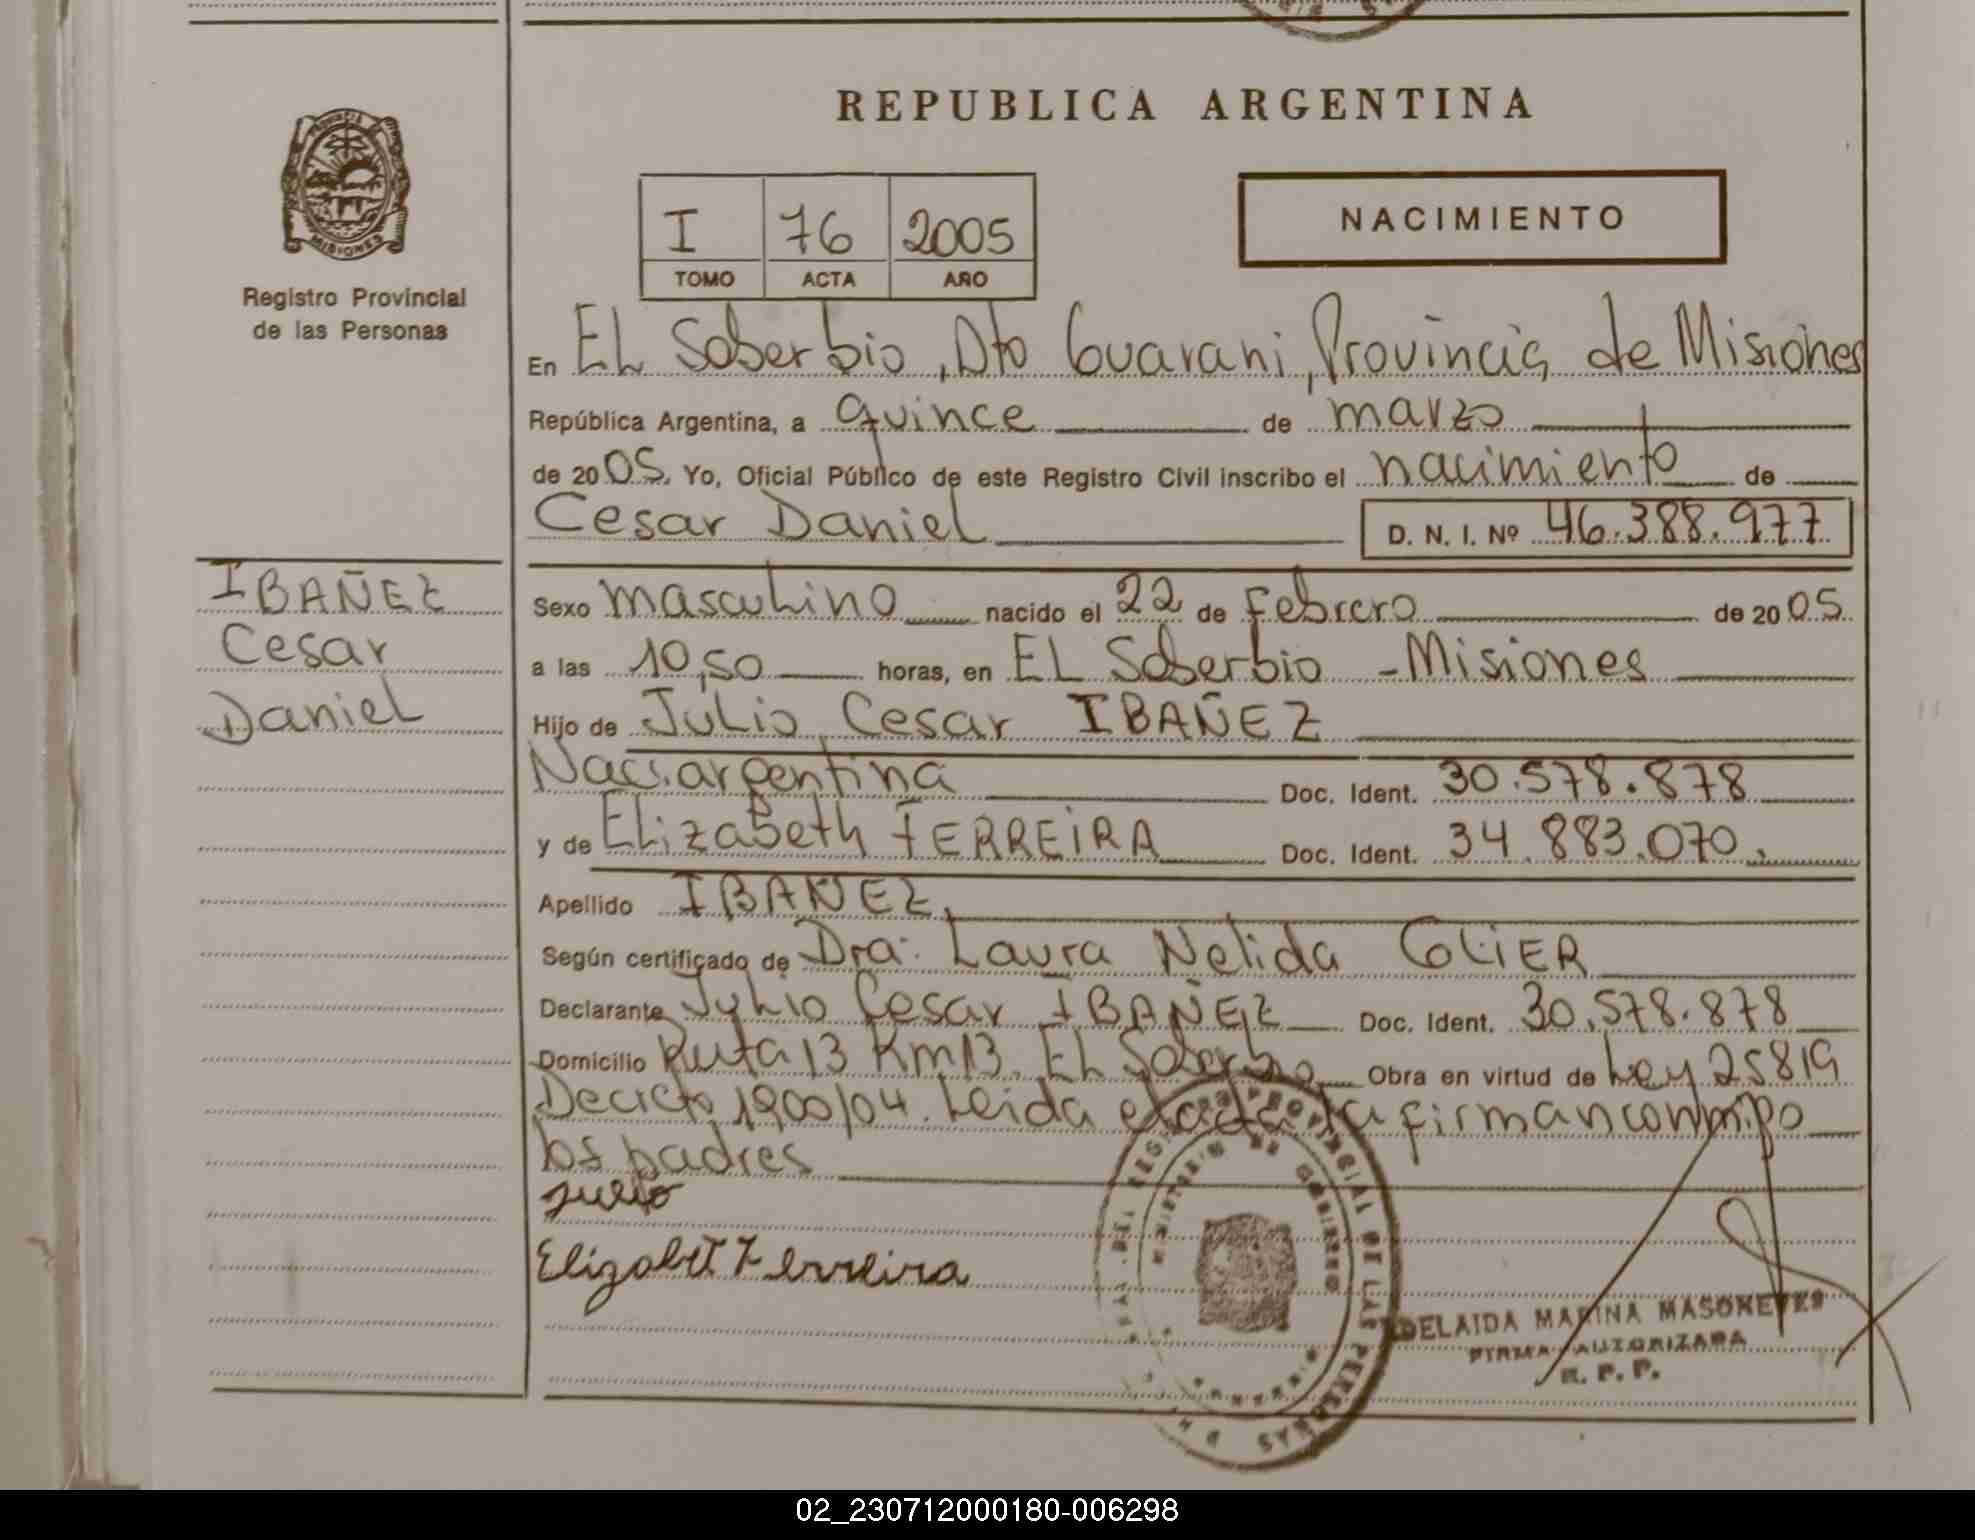 REPUBLICA ARGENTINA
PROVINCIA
MISIONES
Registro Provincial
de las Personas
I 76 2005
TOMO ACTA AÑO
NACIMIENTO
En EL Soberbio, Dto Guarani, Provincia de Misiones
República Argentina, a quince de marzo
de 2005. Yo, Oficial Público de este Registro Civil inscribo el nacimiento de
Cesar Daniel D. N. I. Nº 46.388.977
IBAÑEZ
Cesar
Daniel
Sexo masculino nacido el 22 de Febrero de 2005.
a las 10,50 horas, en EL Soberbio - Misiones
Hijo de Julio Cesar IBAÑEZ
Nac. argentina Doc. Ident. 30.578.878
y de Elizabeth FERREIRA Doc. Ident. 34.883.070.
Apellido IBAÑEZ
Según certificado de Dra. Laura Nelida
Declarante Julio Cesar IBAÑEZ Doc. Ident. 30.578.878
Domicilio Ruta 13 Km 13. EL Soberbio Obra en virtud de Ley 25819
Decreto 1900/04. Leida el acta la firman conmigo
los padres
Julio
Elizabet Ferreira
PROVINCIAL DE LAS PERSONAS
MINISTERIO DE GOBIERNO
ADELAIDA MARINA
FIRMA AUTORIZADA
R. P. P.
02_230712000180-006298